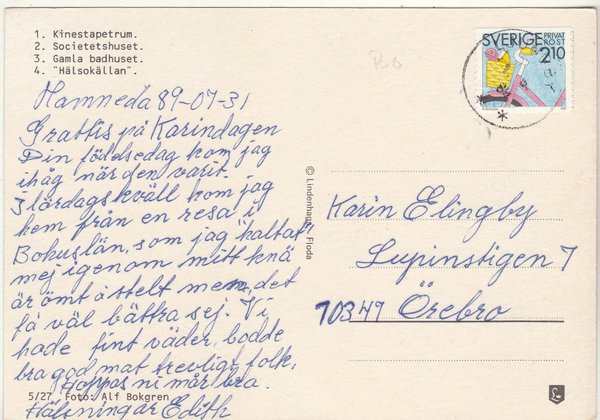 1. Kinestapetrum.
2. Societetshuset.
3. Gamla badhuset.
4. "Hälsokällan".
Hamneda 89-07-31
Grattis på Karindagen
Din födelsedag kom jag
ihåg när den varit.
I lördagskväll kom jag
hem från en resa i
Bohuslän, som jag "haltat"
mej igenom mitt knä
är ömt o stelt men det
få väl bättra sej. Vi
hade fint väder, bodde
bra god mat trevligt folk,
Hoppas ni mår bra.
Hälsningar Edith
5/27 Foto: Alf Bokgren
© Lindenhags, Floda
SVERIGE PRIVAT
POST
2.10
Karin Elingby
Lupinstigen 7
70349 Örebro